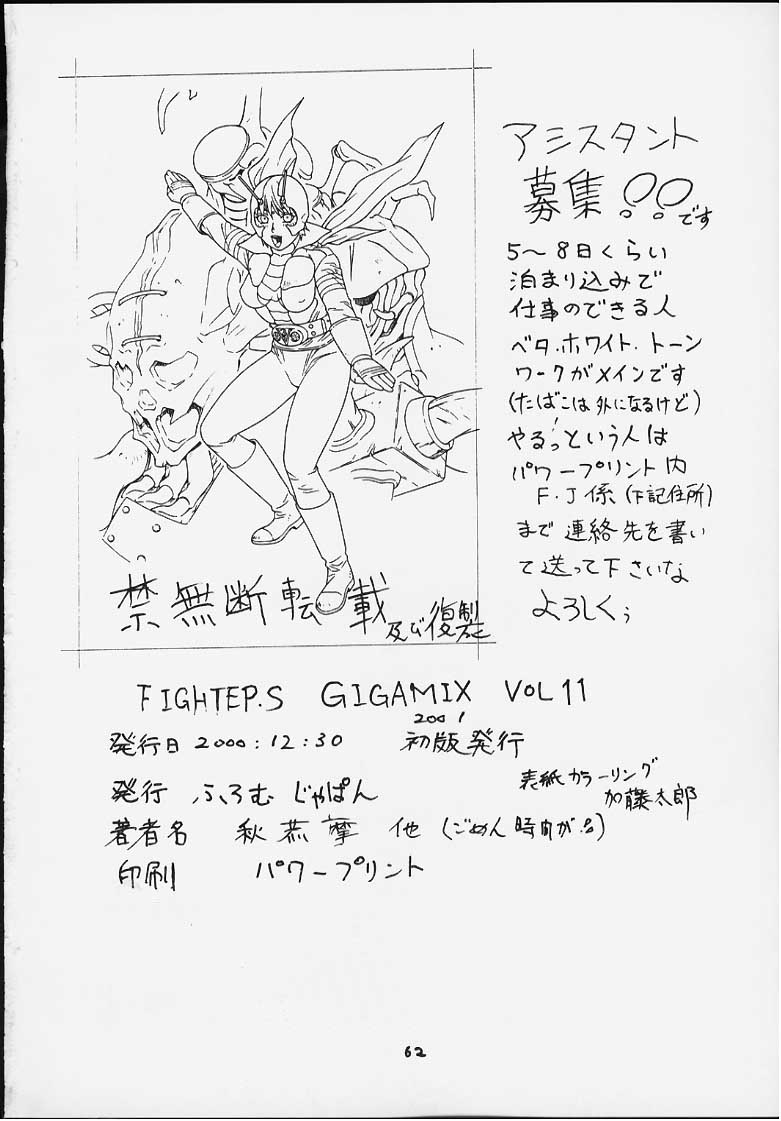 アシスタント
募集!!です
5〜8日くらい
泊まり込みで
仕事のできる人
ベタ.ホワイト.トーン
ワークがメインです
(たばこは外になるけど)
やるっ!という人は
パワープリント内
F.J係(下記住所)
まで連絡先を書い
て送って下さいな
よろしくぅ
禁無断転載
及び復製
FIGHTER.S GIGAMIX VOL 11
発行日 2000:12:30 2001 初版発行
発行 ふろむ じゃぱん
表紙カラーリング
加藤太郎
著者名 秋恭摩 他 (ごめん時間が
印刷 パワープリント
62